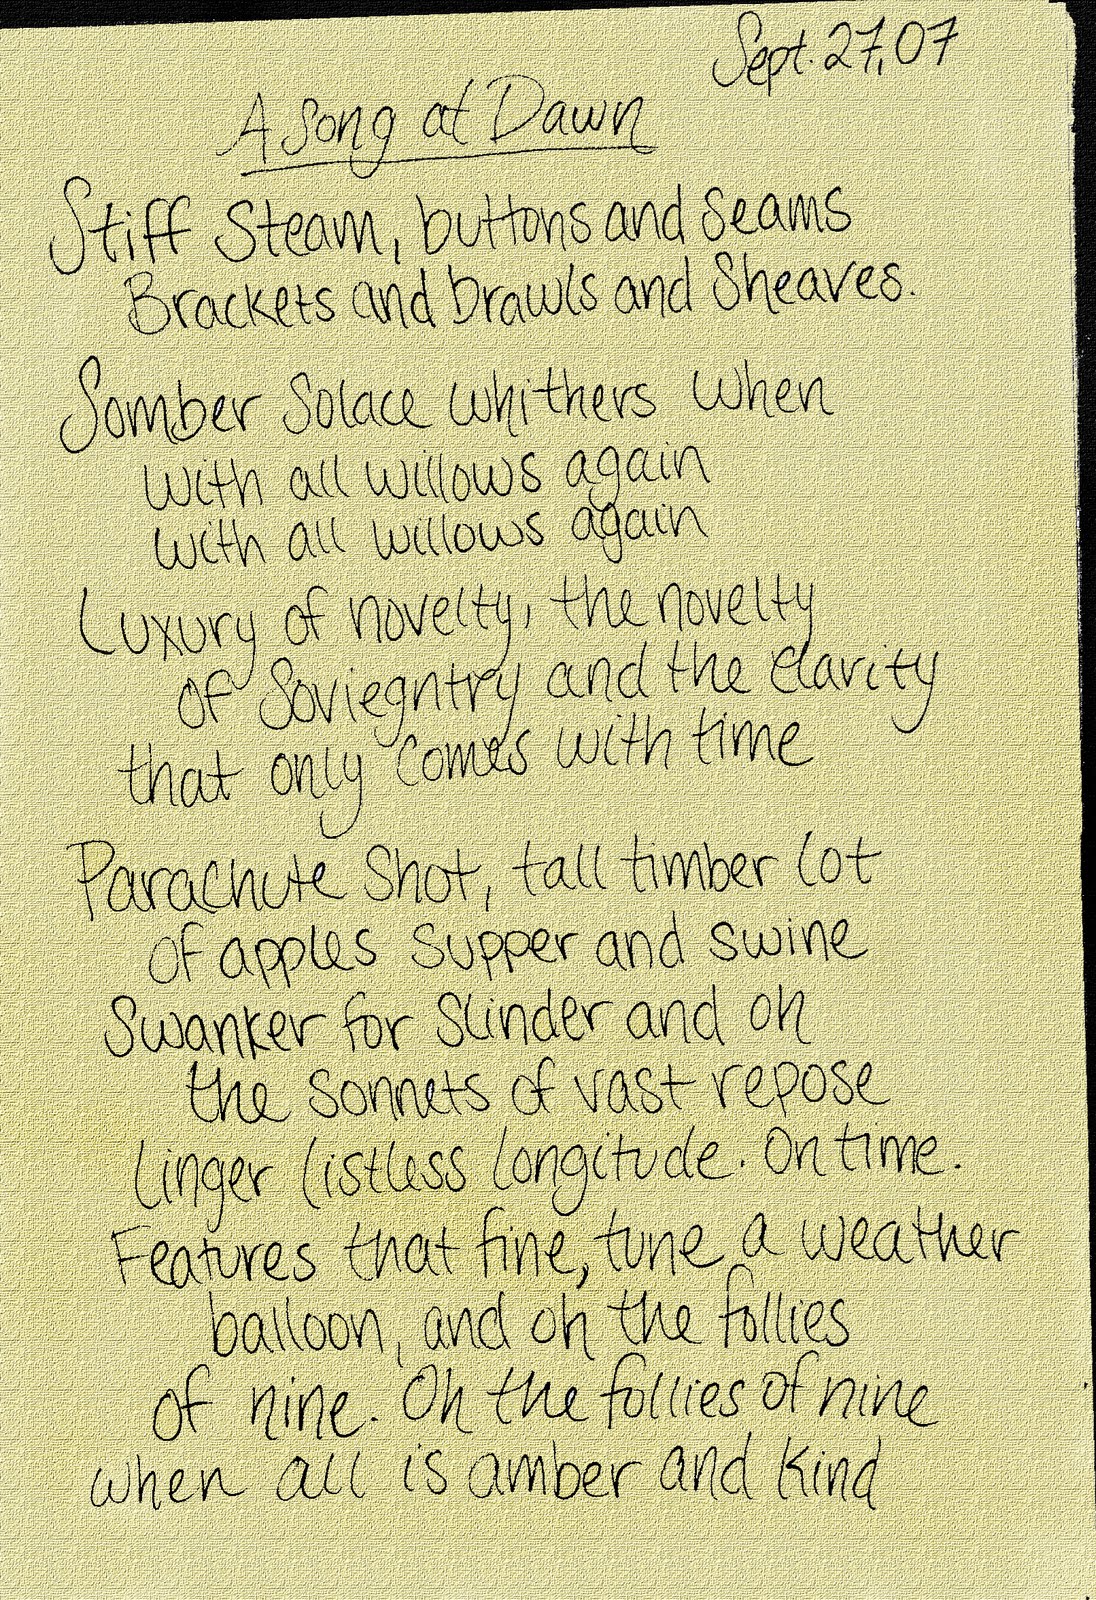 Sept. 27, 07
A Song at Dawn
Stiff Steam, buttons and seams
Brackets and brawls and Sheaves.
Somber Solace whithers when
with all willows again
with all willows again
Luxury of novelty, the novelty
of Soviegntry and the clarity
that only comes with time
Parachute Shot, tall timber lot
of apples supper and swine
Swanker for Slinder and oh
the sonnets of vast repose
Linger listless longitude. On time.
Features that fine, tune a weather
balloon, and oh the follies
of nine. Oh the follies of nine
when all is amber and kind